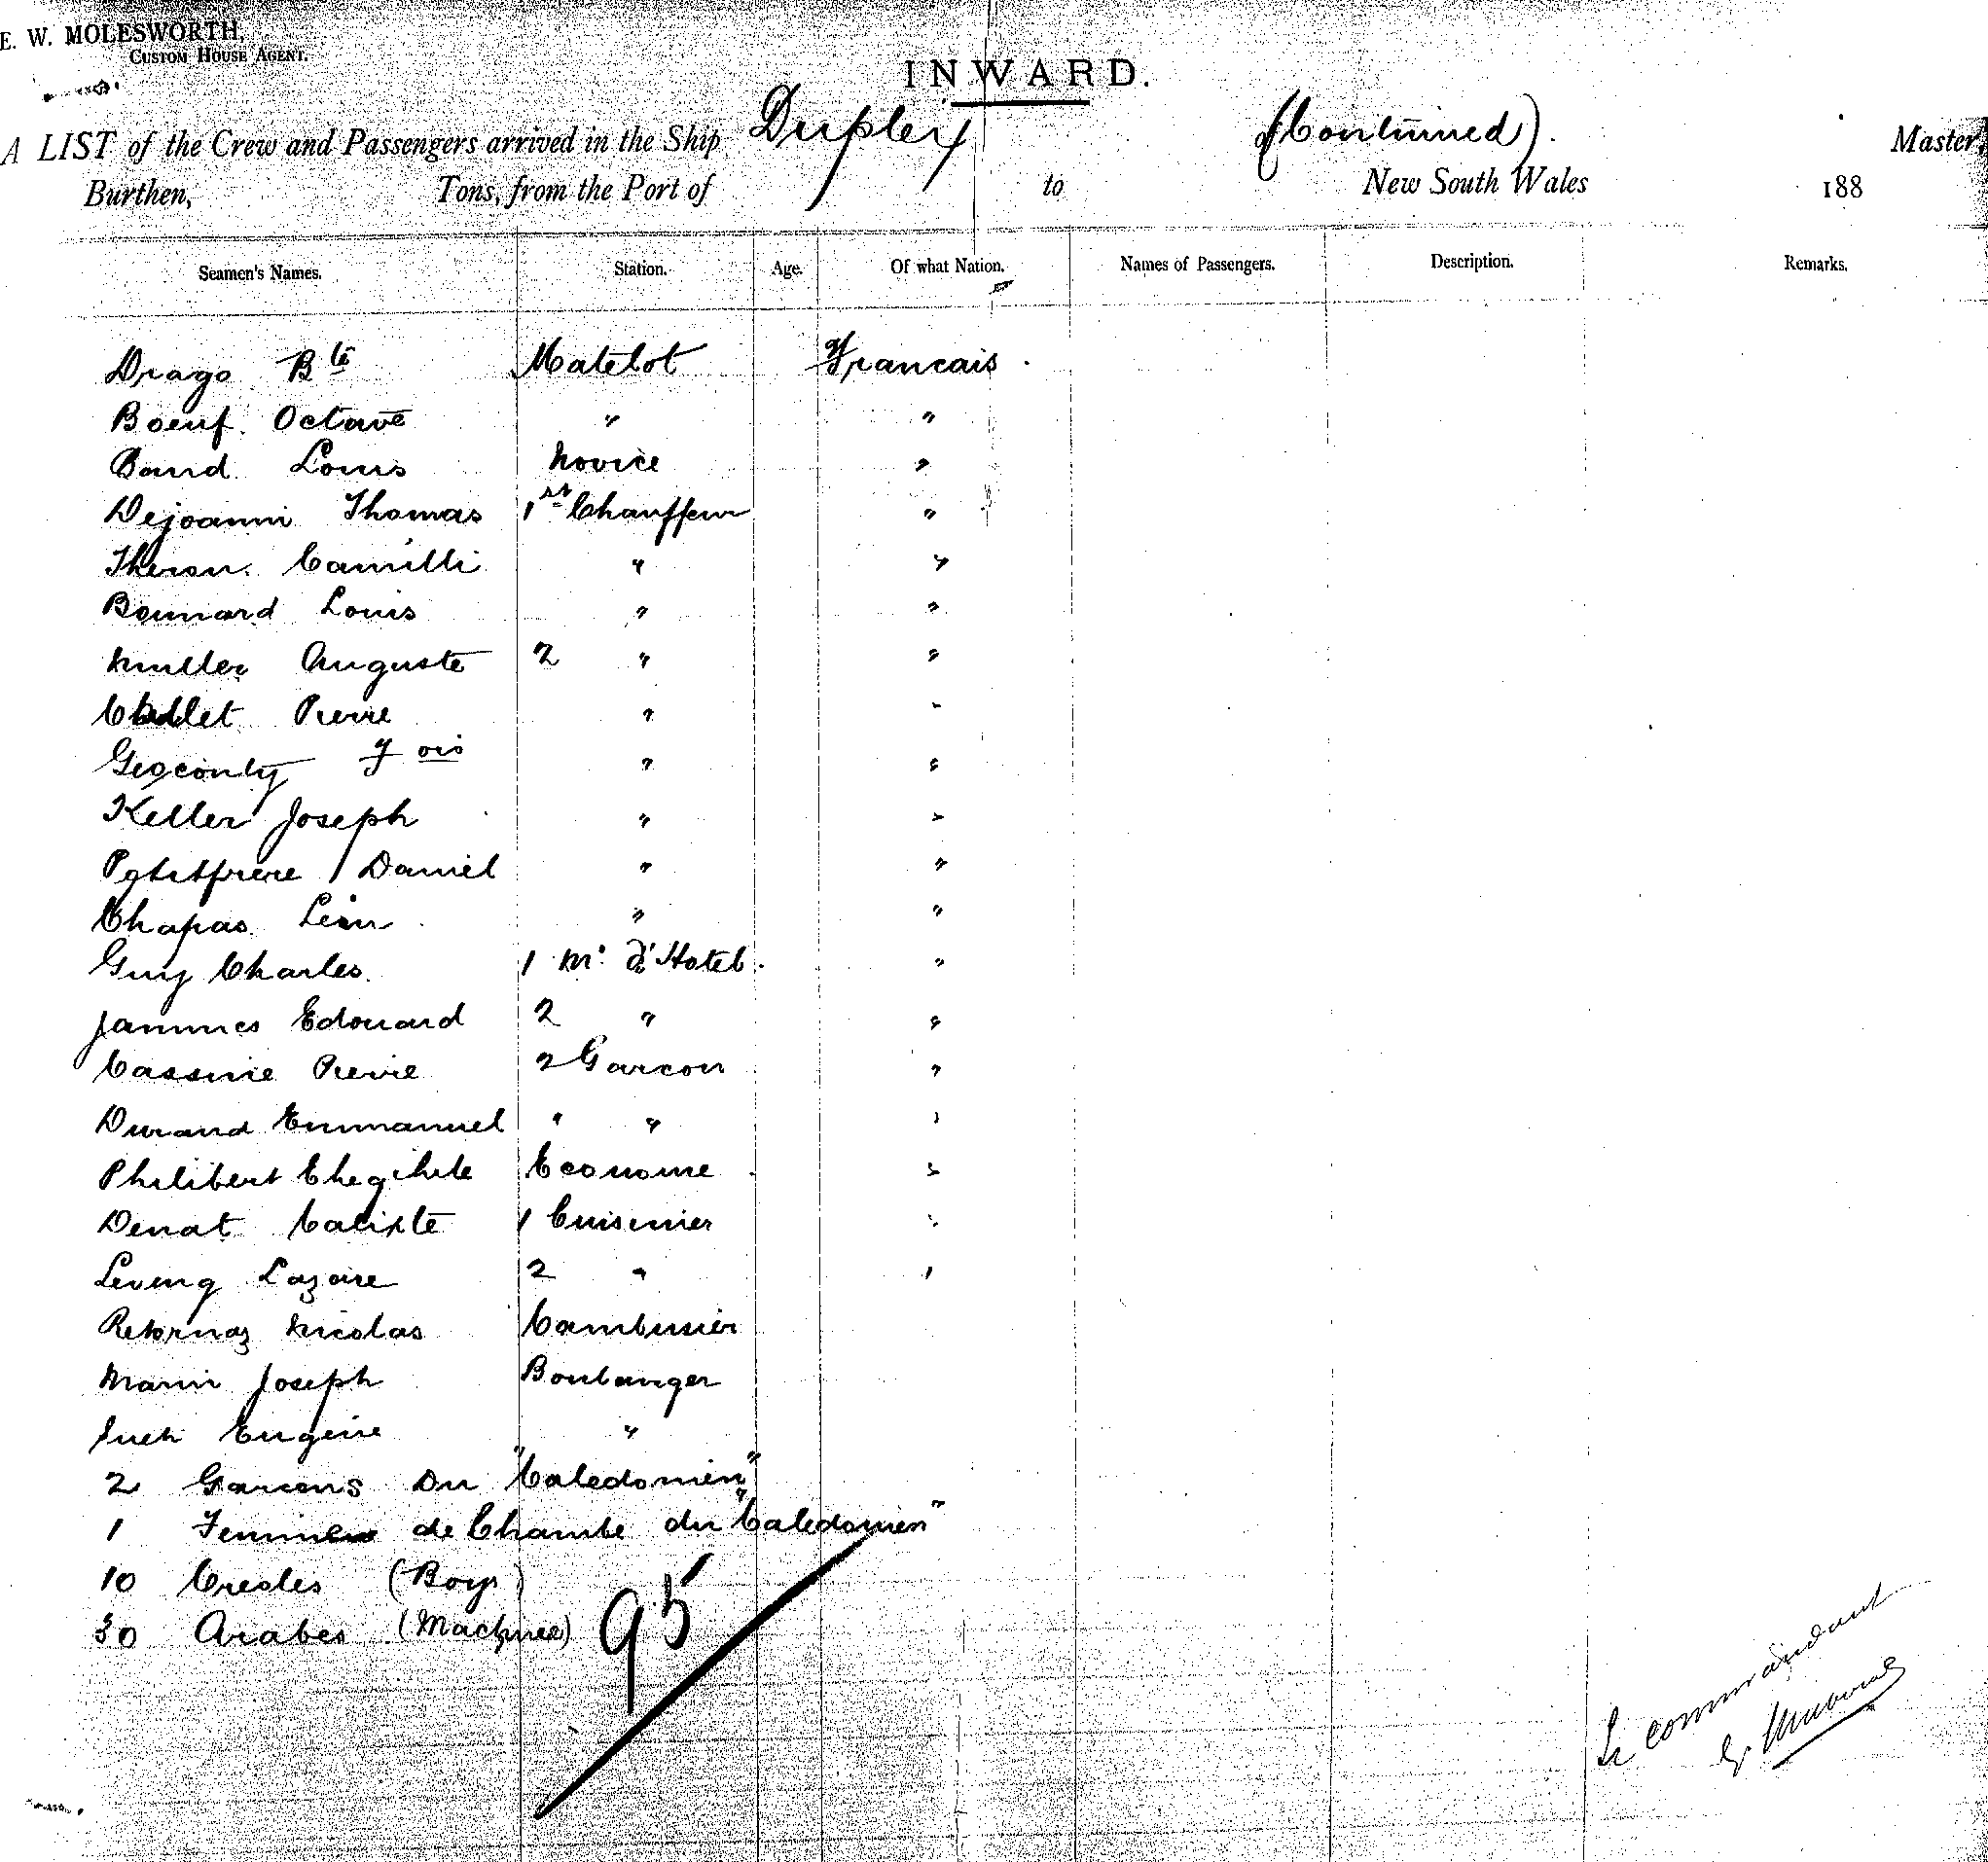 E. W. MOLESWORTH,
CUSTOM HOUSE AGENT.
INWARD.
A LIST of the Crew and Passengers arrived in the Ship Dupleix of (Continued). Master,
Burthen, Tons, from the Port of to New South Wales 188
Seamen's Names. Station. Age. Of what Nation. Names of Passengers. Description. Remarks.
Drago Bte Matelot Francais.
Boeuf. Octave " "
Baud. Louis Novice "
Dejoanni Thomas 1st Chauffeur "
Theron. Camilli " "
Bonnard Louis " "
Muller Auguste 2 " "
Pierre " "
Geoconty Fois " "
Keller Joseph " "
Petitfrere Daniel " "
Chapas Leon " "
Guy Charles. 1 M. d'Hotel. "
Jammes Edouard 2 " "
Cassine Pierre 2 Garcon "
Durand Emmanuel " " "
Philibert Econome "
Denat Calixte 1 Cuisinier "
Lazare 2 " "
Retornaz Nicolas Cambusier
Marin Joseph Boulanger
Eugene "
2 Garcons Du "Caledonien"
1 Femme de Chambe du "Caledonien"
10 Creoles (Boys)
30 Arabes (Machine)
95
Le commandant